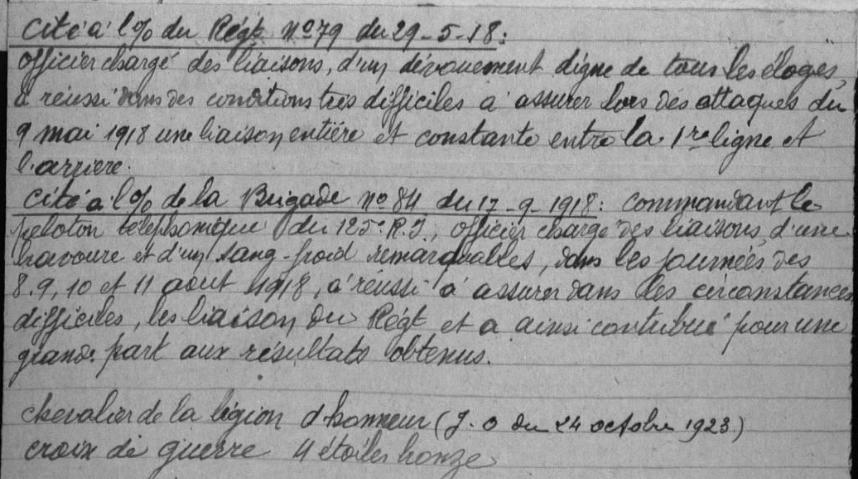 Cité à l'% du Régt n°79 du 29-5-18:
officier chargé des liaisons, d'un dévouement digne de tous les éloges,
a réussi dans des conditions très difficiles à assurer lors des attaques du
9 mai 1918 une liaison entière et constante entre la 1re ligne et
l'arrière.
Cité à l'% de la Brigade n°84 du 17-9-1918: commandant le
peloton téléphonique du 125e R.I, officier chargé des liaisons d'une
bravoure et d'un sang-froid remarquables, dans les journées des
8.9, 10 et 11 aout 1918, a réussi à assurer dans des circonstances
difficiles, les liaison du Régt et a ainsi contribué pour une
grande part aux résultats obtenus.
chevalier de la légion d'honneur (J.O du 24 octobre 1923)
croix de guerre 4 étoiles bronze